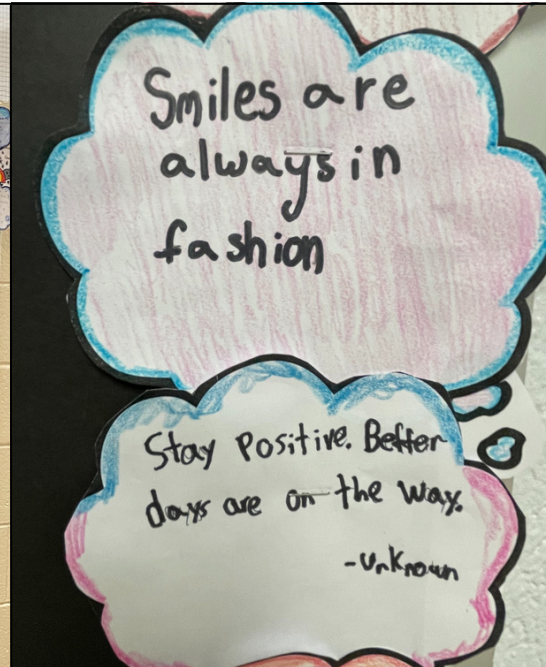 Smiles are
always in
fashion
Stay Positive. Better
days are on the way.
-Unknown